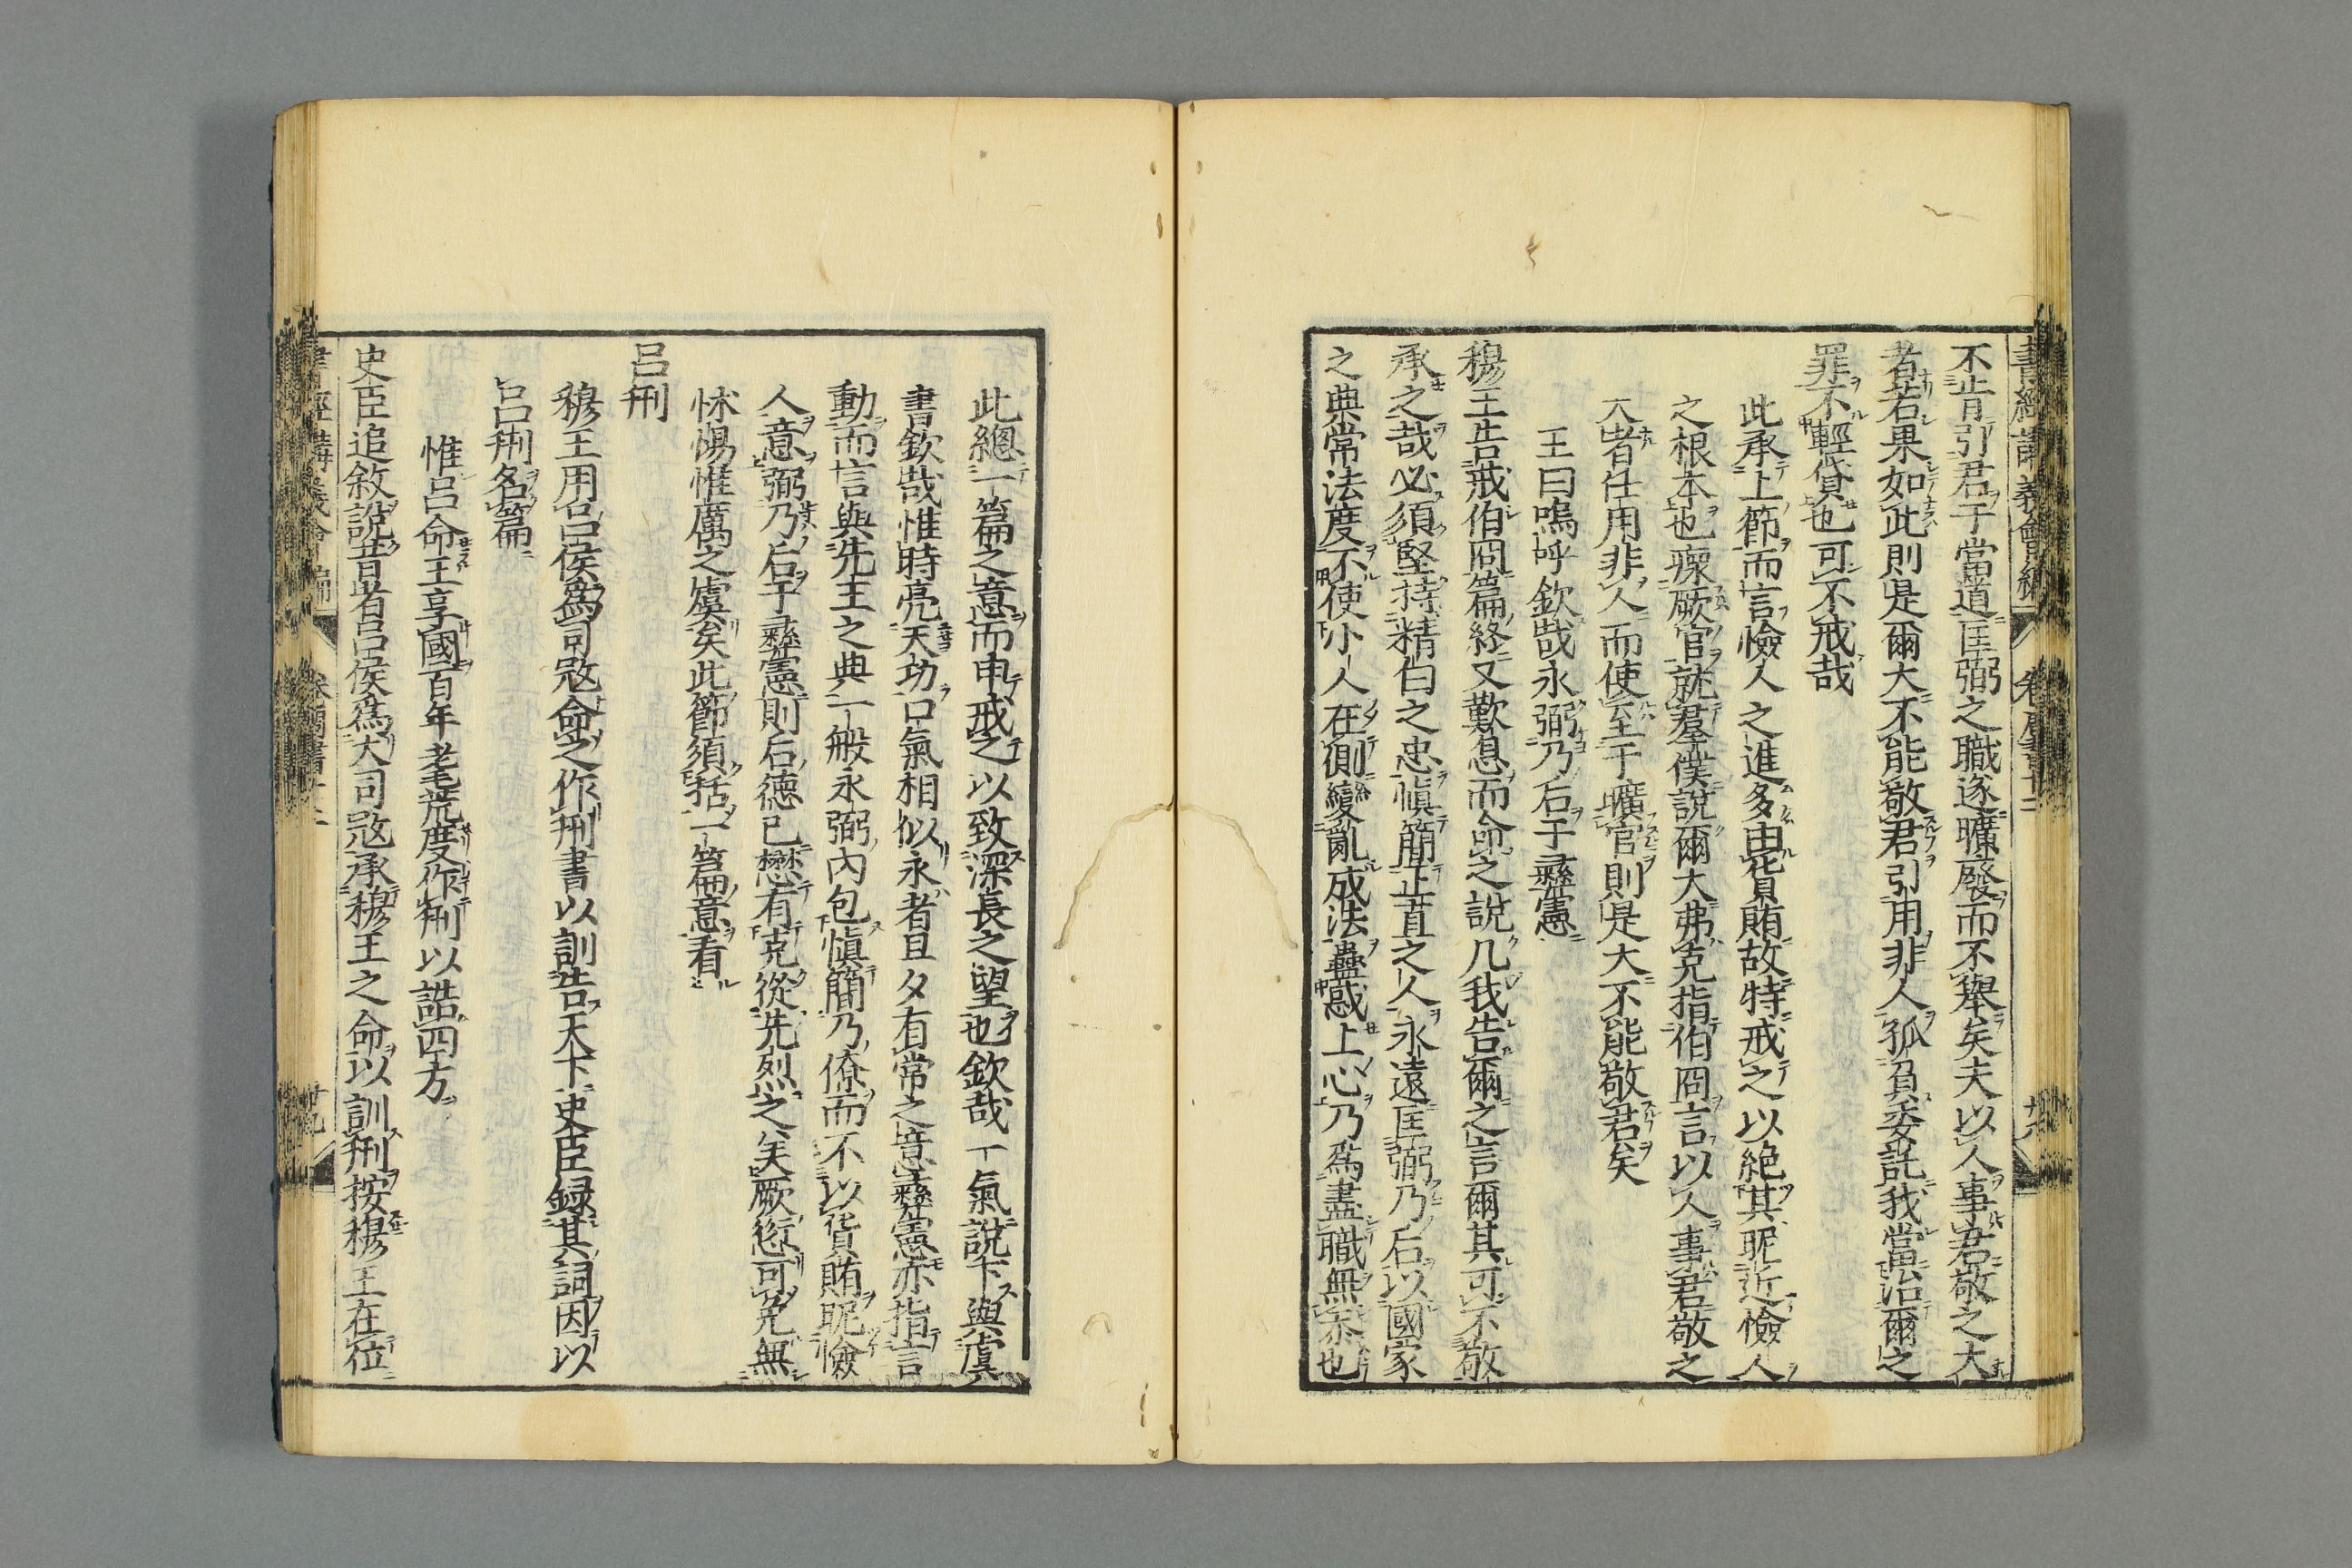 不肯引君子當道匡弼之職遂曠廢而不舉矣夫以人事君敬之大
者若果如此則是爾大不能敬君引用非人孤負委託我當治爾之
罪不輕貸也可不戒哉
此承上節而言憸人之進多由貨賄故特戒之以絶其昵近憸人
之根本也瘝厥官就羣僕說爾大弗克指伯冏言以人事君敬之
大者任用非人而使至于曠官則是大不能敬君矣
王曰嗚呼欽哉永弼乃后于彞憲
穆王告戒伯冏篇終又歎息而命之說凡我告爾之言爾其可不敬
承之哉必須堅持精白之忠愼簡正直之人永遠匡弼乃后以國家
之典常法度不使小人在側變亂成法蠱惑上心乃爲盡職無忝也
此總一篇之意而申戒之以致深長之望也欽哉一氣說下與虞
書欽哉惟時亮天功口氣相似永者旦夕有常之意彞憲亦指言
動而言與先王之典一般永弼內包愼簡乃僚而不以貨賄昵憸
人意弼乃后于彞憲則后德已懋有克從先烈之美厥愆可免無
怵惕惟厲之虞矣此節須括一篇意看
呂刑
穆王用呂侯爲司寇命之作刑書以訓告天下史臣録其詞因以
呂刑名篇
惟呂命王享國百年耄荒度作刑以詰四方
史臣追敘說昔者呂侯爲大司寇承穆王之命以訓刑按穆王在位